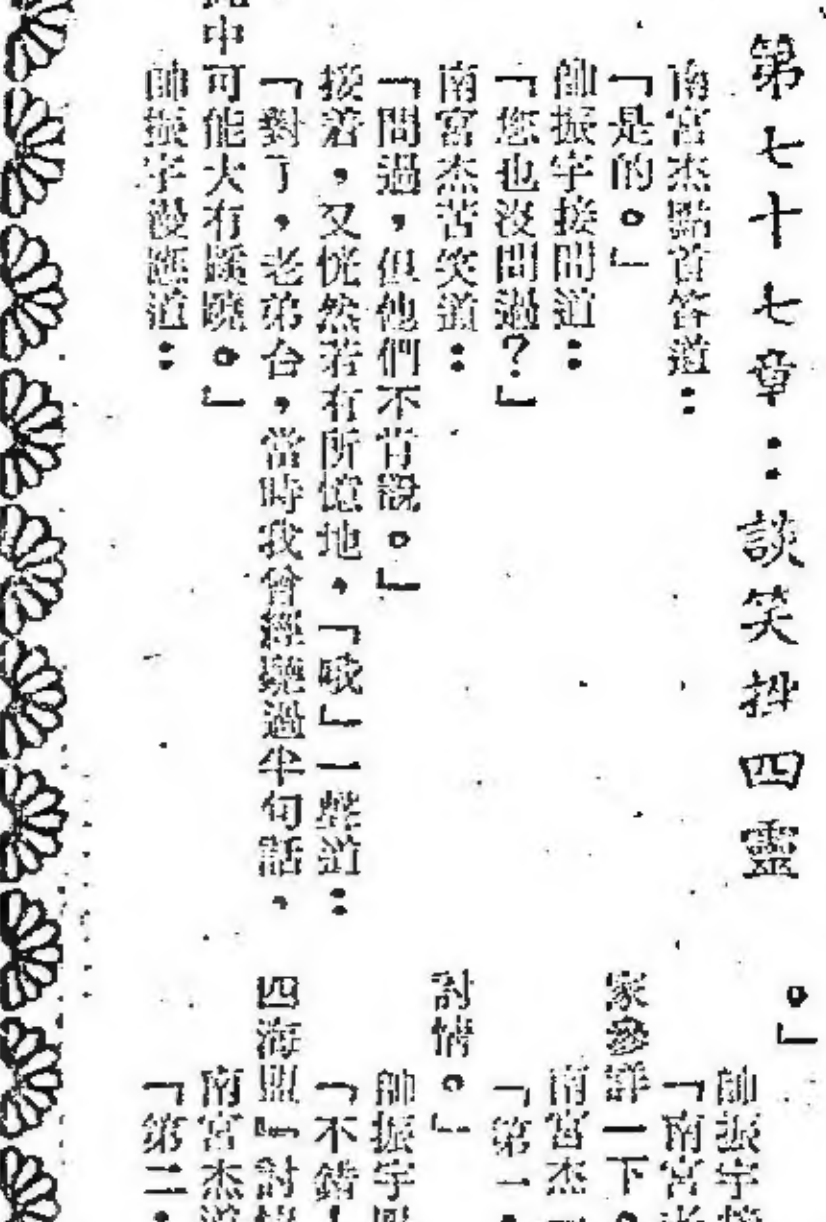 第七十七章：談笑挫四靈
南宮杰點首答道：
「是的。」
帥振宇接問道：
「您也沒問過？」
南宮杰苦笑道：
「問過，但他們不肯說。」
接着，又恍然若有所憶地，「哦」一聲道：
「對了，老弟台，當時我曾經聽過半句話，
中可能大有蹊蹺。」
帥振宇漫應道：
。」
帥振宇接
「南宮老
家參詳一下。
南宮杰
「第一，
討情。」
帥振宇點
「不錯！
四海盟』討情
南宮杰道
「第二，